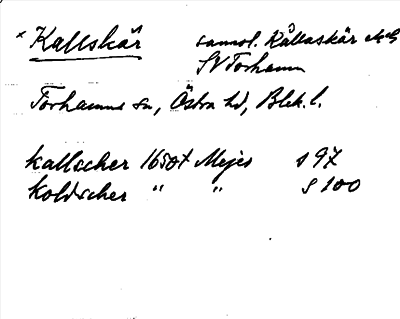 * Kallskär sannol. Kållaskär
SV Torhamn
Torhamns sn, Östra hd, Blek. l.
kallscher 1650t Mejes s 97
koldscher " " s 100